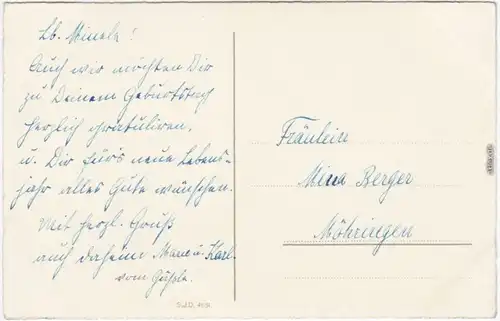 Lb. Minele!
Auch wir möchten Dir
zu Deinem Geburtstag
herzlich gratuliren,
u. Dir fürs neue Lebens-
jahr alles Gute wünschen.
Mit herzl. Gruß
auch daheim Marie u. Karl.
vom
Fräulein
Mina Berger
Möhringen
S.J.D.